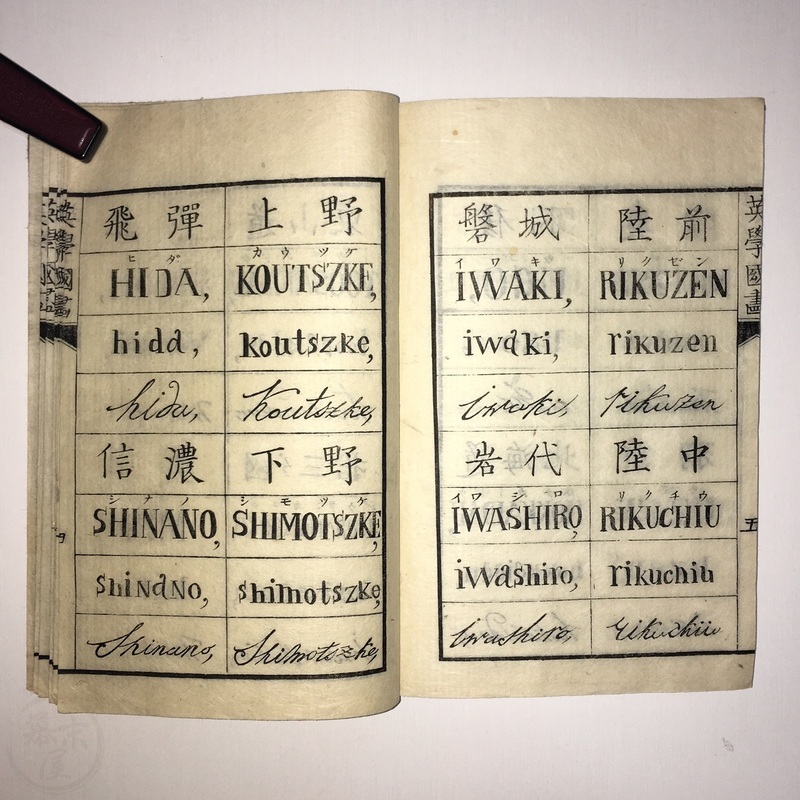 飛彈 上野
ヒダ カウツケ
HIDA, KOUTSZKE,
hida, koutszke,
hida, Koutszke,
信濃 下野
シナノ シモツケ
SHINANO, SHIMOTSZKE
shinano, shimotszke,
Shinano, Shimotszke,
磐城 陸前
イワキ リクゼン
IWAKI, RIKUZEN
iwaki, rikuzen
Iwaki, rikuzen
岩代 陸中
イワシロ リクチウ
IWASHIRO, RIKUCHIU
iwashiro, rikuchiu
Iwashiro, rikuchiu
英學國畫
五